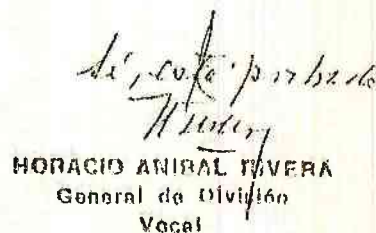 Sí, está probado
HORACIO ANIBAL RIVERA
General de División
Vocal